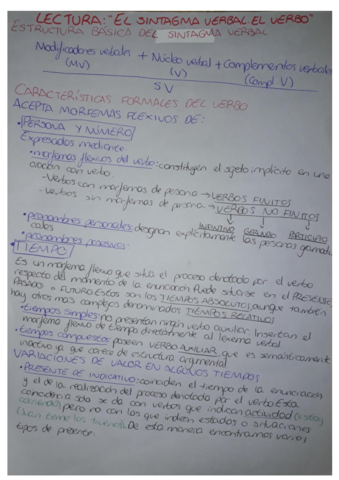 LECTURA: "EL SINTAGMA VERBAL. EL VERBO"
ESTRUCTURA BÁSICA DEL SINTAGMA VERBAL
Modificadores verbales + Núcleo verbal + Complementos verbales
(MV) (V) (Compl V)
SV
CARACTERÍSTICAS FORMALES DEL VERBO
ACEPTA MORFEMAS FLEXIVOS DE:
• PERSONA Y NÚMERO
Expresados mediante
• morfemas flexivos del verbo: constituyen el sujeto implícito en una
oración con verbo.
- Verbos con morfemas de persona → VERBOS FINITOS
- Verbos sin morfemas de persona → VERBOS NO FINITOS
INFINITIVO GERUNDIO PARTICIPIO
• pronombres personales: designan explícitamente las personas gramati
cales
• pronombres posesivos.
• TIEMPO
Es un morfema flexivo que sitúa el proceso denotado por el verbo
respecto del momento de la enunciación. Puede situarse en el PRESENTE
PASADO o FUTURO. Estos son los TIEMPOS ABSOLUTOS, aunque también
hay otros más complejos denominados TIEMPOS RELATIVOS
• tiempos simples: no presentan ningún verbo auxiliar. Insertan el
morfema flexivo de tiempo directamente al lexema verbal
• tiempos compuestos: poseen VERBO AUXILIAR que es semánticamente
inactivo ya que carece de estructura argumental
VARIACIONES DE VALOR EN ALGUNOS TIEMPOS
• PRESENTE DE INDICATIVO: coinciden el tiempo de la enunciación
y el de la realización del proceso denotado por el verbo. Esta
coincidencia solo se da con verbos que indican actividad
pero no con los que indican estados o situaciones
De esta manera encontramos varios
tipos de presente: